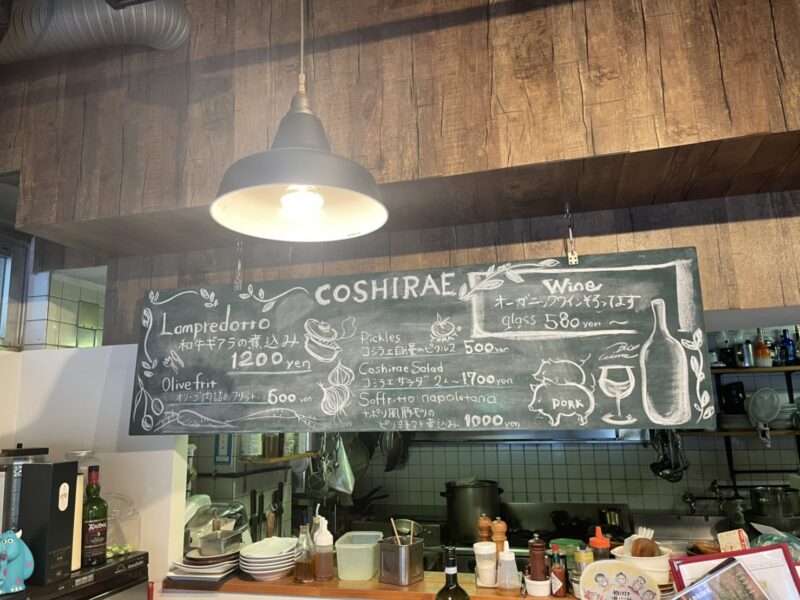 COSHIRAE
Lampredotto
和牛ギアラの煮込み
1200 yen
Olive frit
オリーブ肉詰めフリット 600 yen
Pickles
コシラエ自慢のピクルス 500 yen
Coshirae Salad
コシラエサラダ 2人〜 1700 yen
Soffritto napoletana
ナポリ風豚モツの
ピリ辛トマト煮込み 1000 yen
Wine
オーガニックワインそろってます
glass 580 yen 〜
PORK
Ardbeg